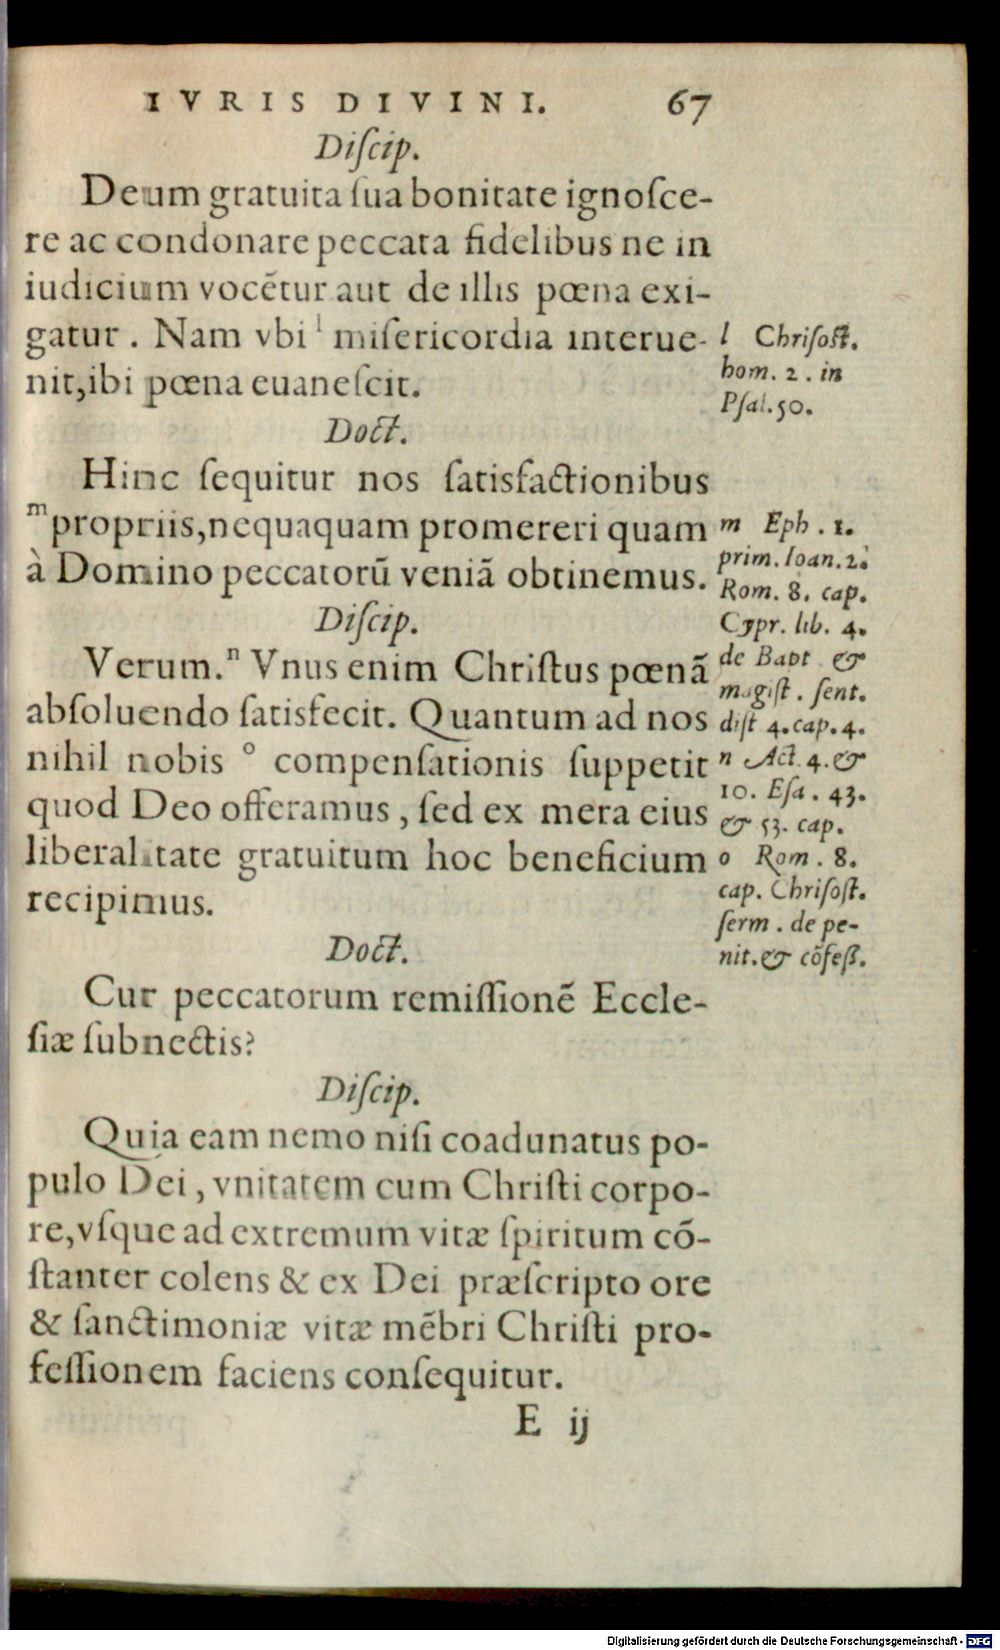 IVRIS DIVINI. 67
Diſcip.
Deum gratuita ſua bonitate ignoſce-
re ac condonare peccata fidelibus ne in
iudicium vocētur aut de illis pœna exi-
gatur. Nam vbi l miſericordia interue-
nit, ibi pœna euaneſcit.
l Chriſoſt.
hom. 2. in
Pſal. 50.
Doct.
Hinc ſequitur nos ſatisfactionibus
m propriis, nequaquam promereri quam
à Domino peccatorū veniā obtinemus.
m Eph. 1.
prim. Ioan. 2.
Rom. 8. cap.
Cypr. lib. 4.
de Bapt &
magiſt. ſent.
diſt 4. cap. 4.
Diſcip.
Verum. n Vnus enim Chriſtus pœnā
abſoluendo ſatisfecit. Quantum ad nos
nihil nobis o compenſationis ſuppetit
quod Deo offeramus, ſed ex mera eius
liberalitate gratuitum hoc beneficium
recipimus.
n Act. 4. &
10. Eſa. 43.
& 53. cap.
o Rom. 8.
cap. Chriſoſt.
ſerm. de pe-
nit. & cōfeſſ.
Doct.
Cur peccatorum remiſſionē Eccle-
ſiæ ſubnectis?
Diſcip.
Quia eam nemo niſi coadunatus po-
pulo Dei, vnitatem cum Chriſti corpo-
re, vſque ad extremum vitæ ſpiritum cō-
ſtanter colens & ex Dei præſcripto ore
& ſanctimoniæ vitæ mēbri Chriſti pro-
feſſionem faciens conſequitur.
E ij
Digitalisierung gefördert durch die Deutsche Forschungsgemeinschaft - DFG